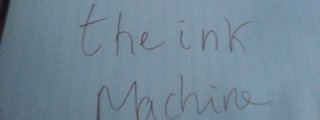 the ink
Machine